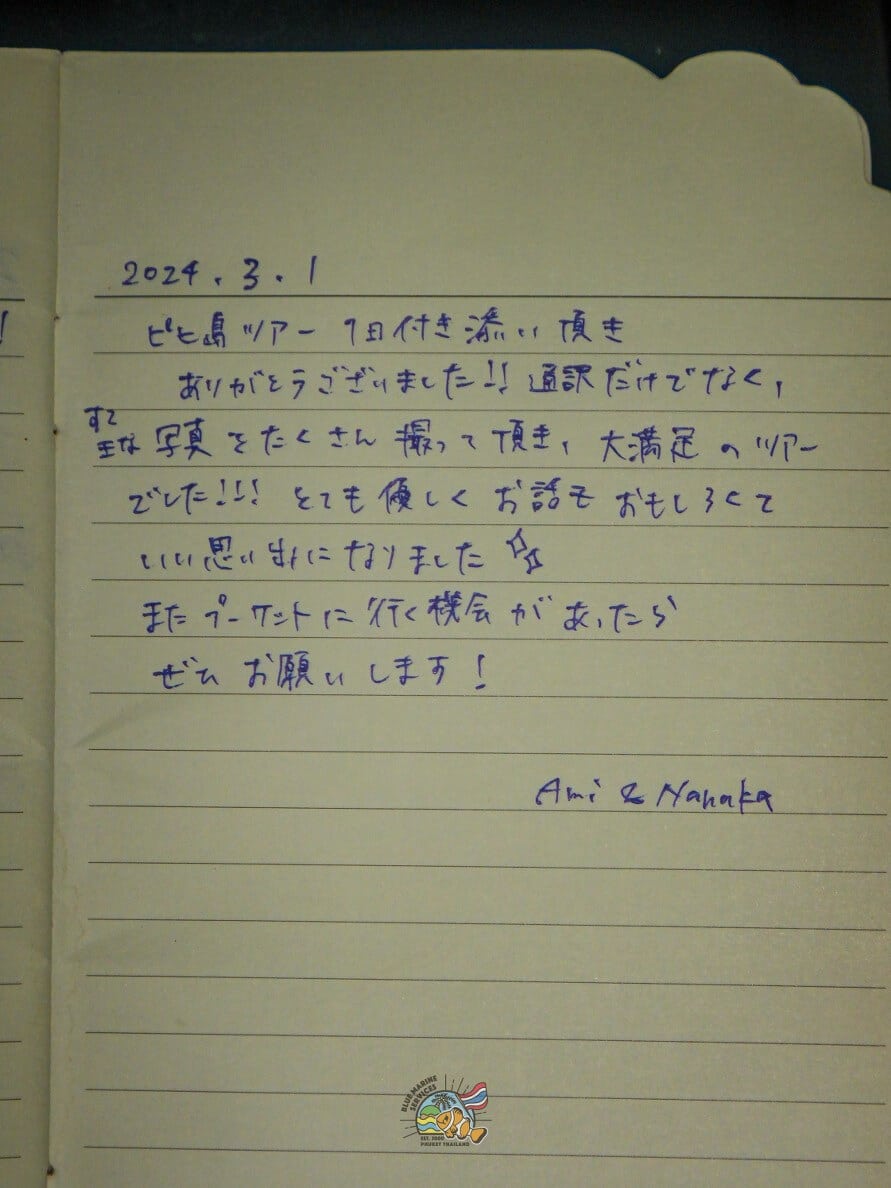 2024.3.1
ピピ島ツアー 1日付き添い頂き
ありがとうございました!! 通訳だけでなく,
すてきな写真をたくさん撮って頂き, 大満足のツアー
でした!!! とても優しくお話もおもしろくて
いい思い出になりました
またプーケットに行く機会があったら
ぜひお願いします!
Ami & Nanaka
BLUE MARINE SERVICES
EST. 2000
PHUKET THAILAND